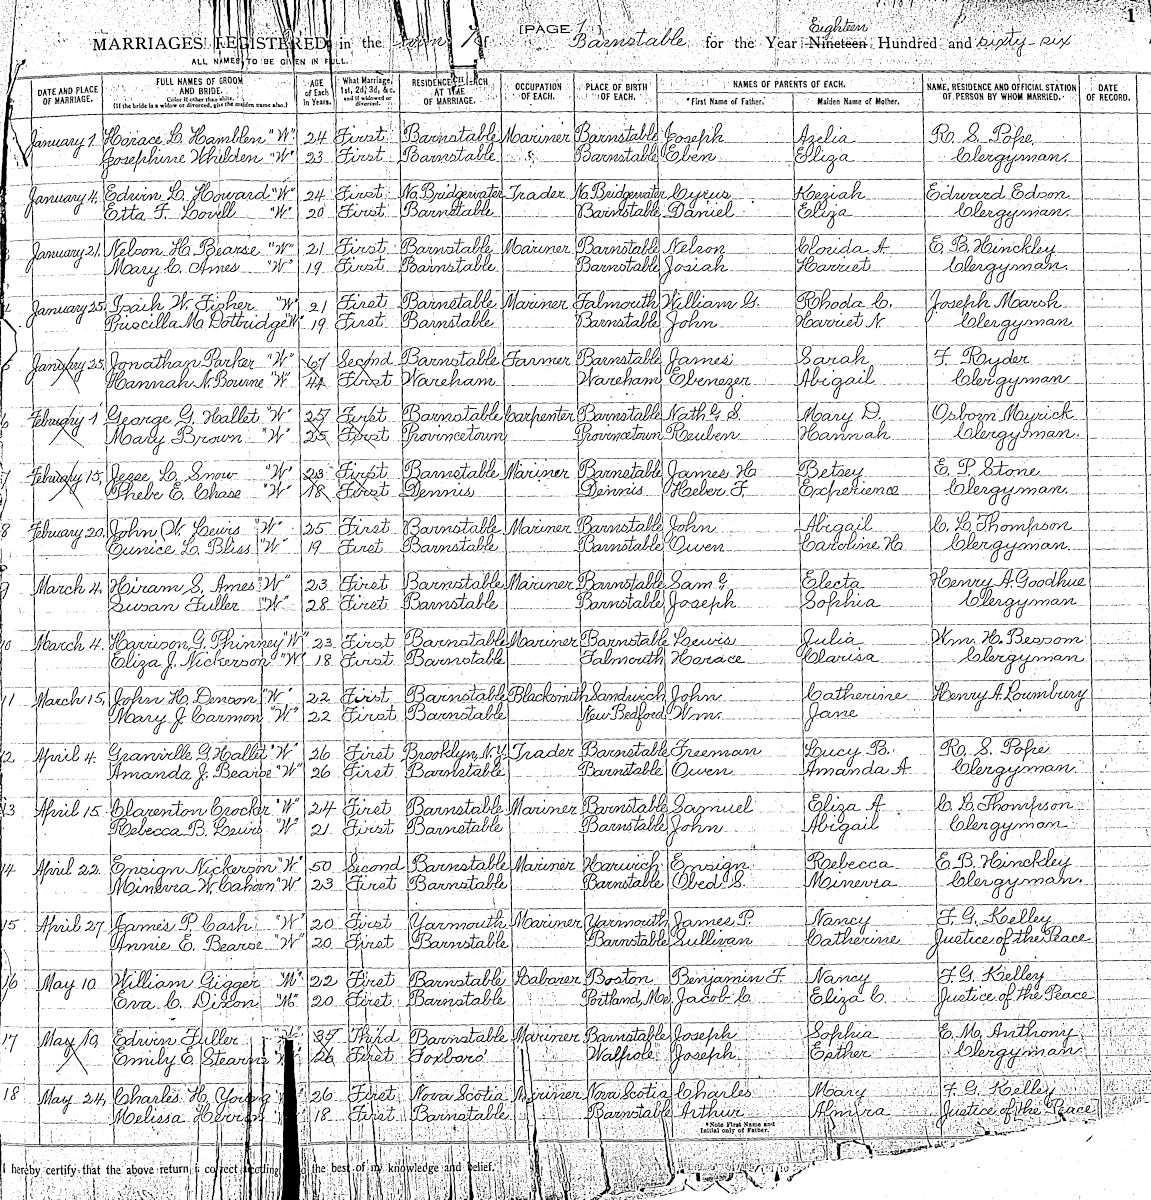 [PAGE 1]
1
MARRIAGES REGISTERED in the Town of Barnstable for the Year Eighteen Nineteen Hundred and sixty-six
ALL NAMES TO BE GIVEN IN FULL.
DATE AND PLACE OF MARRIAGE. FULL NAMES OF GROOM AND BRIDE. Color if other than white. (If the bride is a widow or divorced, give the maiden name also.) AGE of Each in Years. What Marriage, 1st, 2d, 3d, &c. and if widowed or divorced. RESIDENCE OF EACH AT TIME OF MARRIAGE. OCCUPATION OF EACH. PLACE OF BIRTH OF EACH. NAMES OF PARENTS OF EACH. *First Name of Father. Maiden Name of Mother. NAME, RESIDENCE AND OFFICIAL STATION OF PERSON BY WHOM MARRIED. DATE OF RECORD.
January 1 Horace L. Hamblen "W" 24 First Barnstable Mariner Barnstable Joseph Azelia R. S. Pope,
Josephine Whilden "W" 23 First Barnstable Barnstable Eben Eliza Clergyman.
January 4, Edwin L. Howard "W" 24 First No. Bridgewater Trader No. Bridgewater Cyrus Keziah Edward Edson
Etta F. Lovell "W" 20 First Barnstable Barnstable Daniel Eliza Clergyman.
3 January 21, Nelson H. Bearse "W" 21 First Barnstable Mariner Barnstable Nelson Clorida A. E. B. Hinckley
Mary C. Ames "W" 19 First Barnstable Barnstable Josiah Harriet Clergyman.
January 25, Isaih W. Fisher "W" 21 First Barnstable Mariner Falmouth William G. Rhoda C. Joseph Marsh
Priscilla M. Dottridge "W" 19 First Barnstable Barnstable John Harriet N. Clergyman
5 January 25, Jonathan Parker "W" 67 Second Barnstable Farmer Barnstable James Sarah F. Ryder
Hannah N. Bourne "W" 44 First Wareham Wareham Ebenezer Abigail Clergyman
6 Febuary 1 George G. Hallet "W" 27 First Barnstable Carpenter Barnstable Nath G. S. Mary D. Osborn Myrick
Mary Brown "W" 25 First Provincetown Provincetown Reuben Hannah Clergyman.
7 Febuary 15, Jesse L. Snow "W" 23 First Barnstable Mariner Barnstable James H. Betsey E. P. Stone
Phebe E. Chase "W" 18 First Dennis Dennis Heber F. Experience Clergyman.
8 Febuary 20, John W. Lewis "W" 25 First Barnstable Mariner Barnstable John Abigail C. L. Thompson
Eunice L. Bliss "W" 19 First Barnstable Barnstable Owen Caroline H Clergyman.
9 March 4, Hiram S. Ames "W" 23 First Barnstable Mariner Barnstable Electa Henry A. Goodhue
Susan Fuller "W" 28 First Barnstable Barnstable Joseph Sophia Clergyman
10 March 4. Harrison G. Phinney "W" 23 First Barnstable Mariner Barnstable Lewis Julia Wm. H. Bessom
Eliza J. Nickerson "W" 18 First Barnstable Falmouth Horace Clarisa Clergyman.
11 March 15, John H. Denson "W" 22 First Barnstable Blacksmith Sandwich John Catherine Henry A.
Mary J. Carmon "W" 22 First Barnstable New Bedford Wm. Jane
12 April 4. Granville G. Hallet "W" 26 First Brooklyn, N.Y. Trader Barnstable Freeman Lucy B. R. S. Pope
Amanda J. Bearse "W" 26 First Barnstable Barnstable Owen Amanda A Clergyman.
13 April 15 Clarenton Crocker "W" 24 First Barnstable Mariner Barnstable Samuel Eliza A. C. L. Thompson
Rebecca B. Lewis "W" 21 First Barnstable Barnstable John Abigail Clergyman
14 April 22. Ensign Nickerson "W" 50 Second Barnstable Mariner Harwich Ensign Rebecca E. B. Hinckley
Minerva W. Cahoon "W" 23 First Barnstable Barnstable Obed S. Minerva Clergyman.
15 April 27 James P. Cash "W" 20 First Yarmouth Mariner Yarmouth James P. Nancy F. G. Kelley
Annie E. Bearse "W" 20 First Barnstable Barnstable Sullivan Catherine Justice of the Peace
16 May 10 William Gigger "M" 22 First Barnstable Labarer Boston Benjamin F. Nancy F. G. Kelley
Eva C. Dixon "M" 20 First Barnstable Portland, Me. Jacob C. Eliza C. Justice of the Peace
17 May 19, Edwin Fuller "W" 37 Third Barnstable Mariner Barnstable Joseph Sophia E. M. Anthony
Emily E. Stearns 26 First Foxboro' Walpole Joseph Esther Clergyman
18 May 24, Charles H. Young 26 First Nova Scotia Mariner Nova Scotia Charles Mary F. G. Kelley
Melissa 18 First Barnstable Barnstable Arthur Almira Justice of the Peace
*Note First Name and Initial only of Father.
I hereby certify that the above return is correct according to the best of my knowledge and belief.